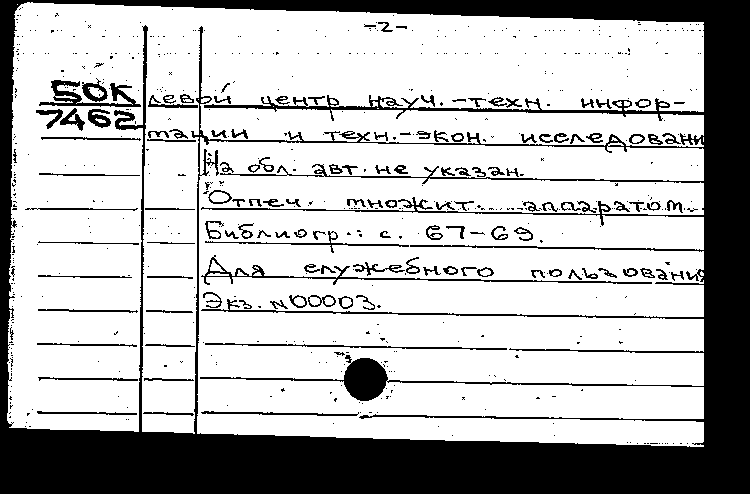 -2-
50К левой центр науч.-техн. инфор-
7462 тации и техн.-экон. исследовани
На обл. авт. не указан.
Отпеч. множит. аппаратом.
Библиогр.: с. 67-69.
Для служебного пользования
Экз. N00003.